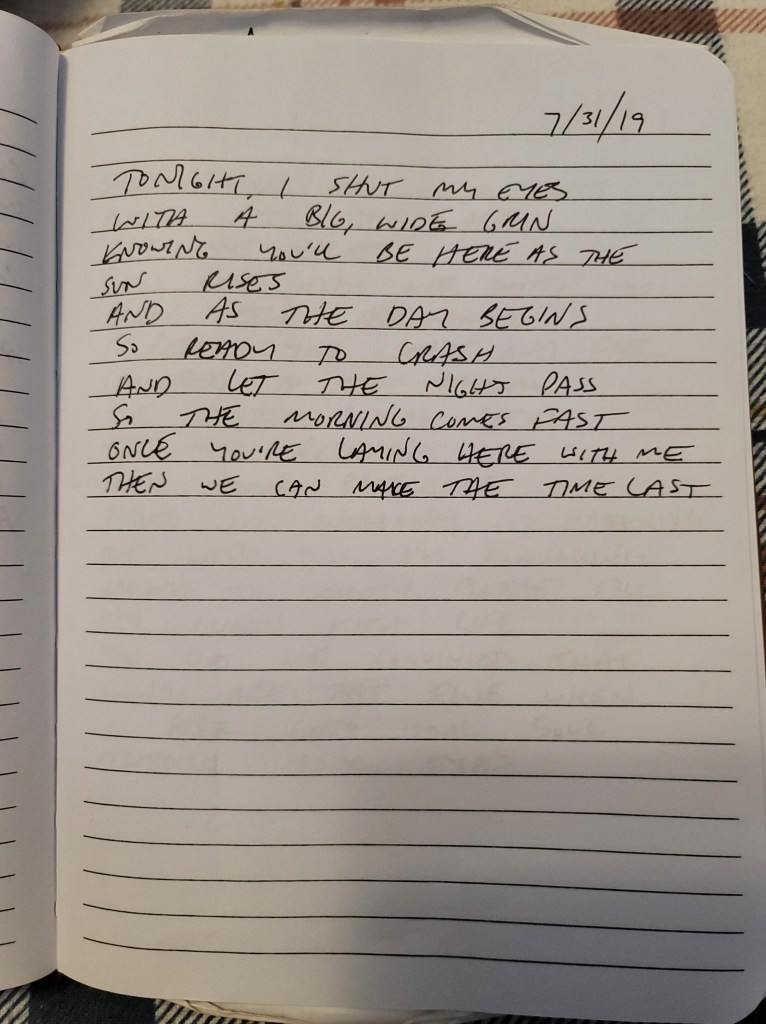 7/31/19
TONIGHT, I SHUT MY EYES
WITH A BIG, WIDE GRIN
KNOWING YOU'LL BE HERE AS THE
SUN RISES
AND AS THE DAY BEGINS
SO READY TO CRASH
AND LET THE NIGHT PASS
SO THE MORNING COMES FAST
ONCE YOU'RE LAYING HERE WITH ME
THEN WE CAN MAKE THE TIME LAST